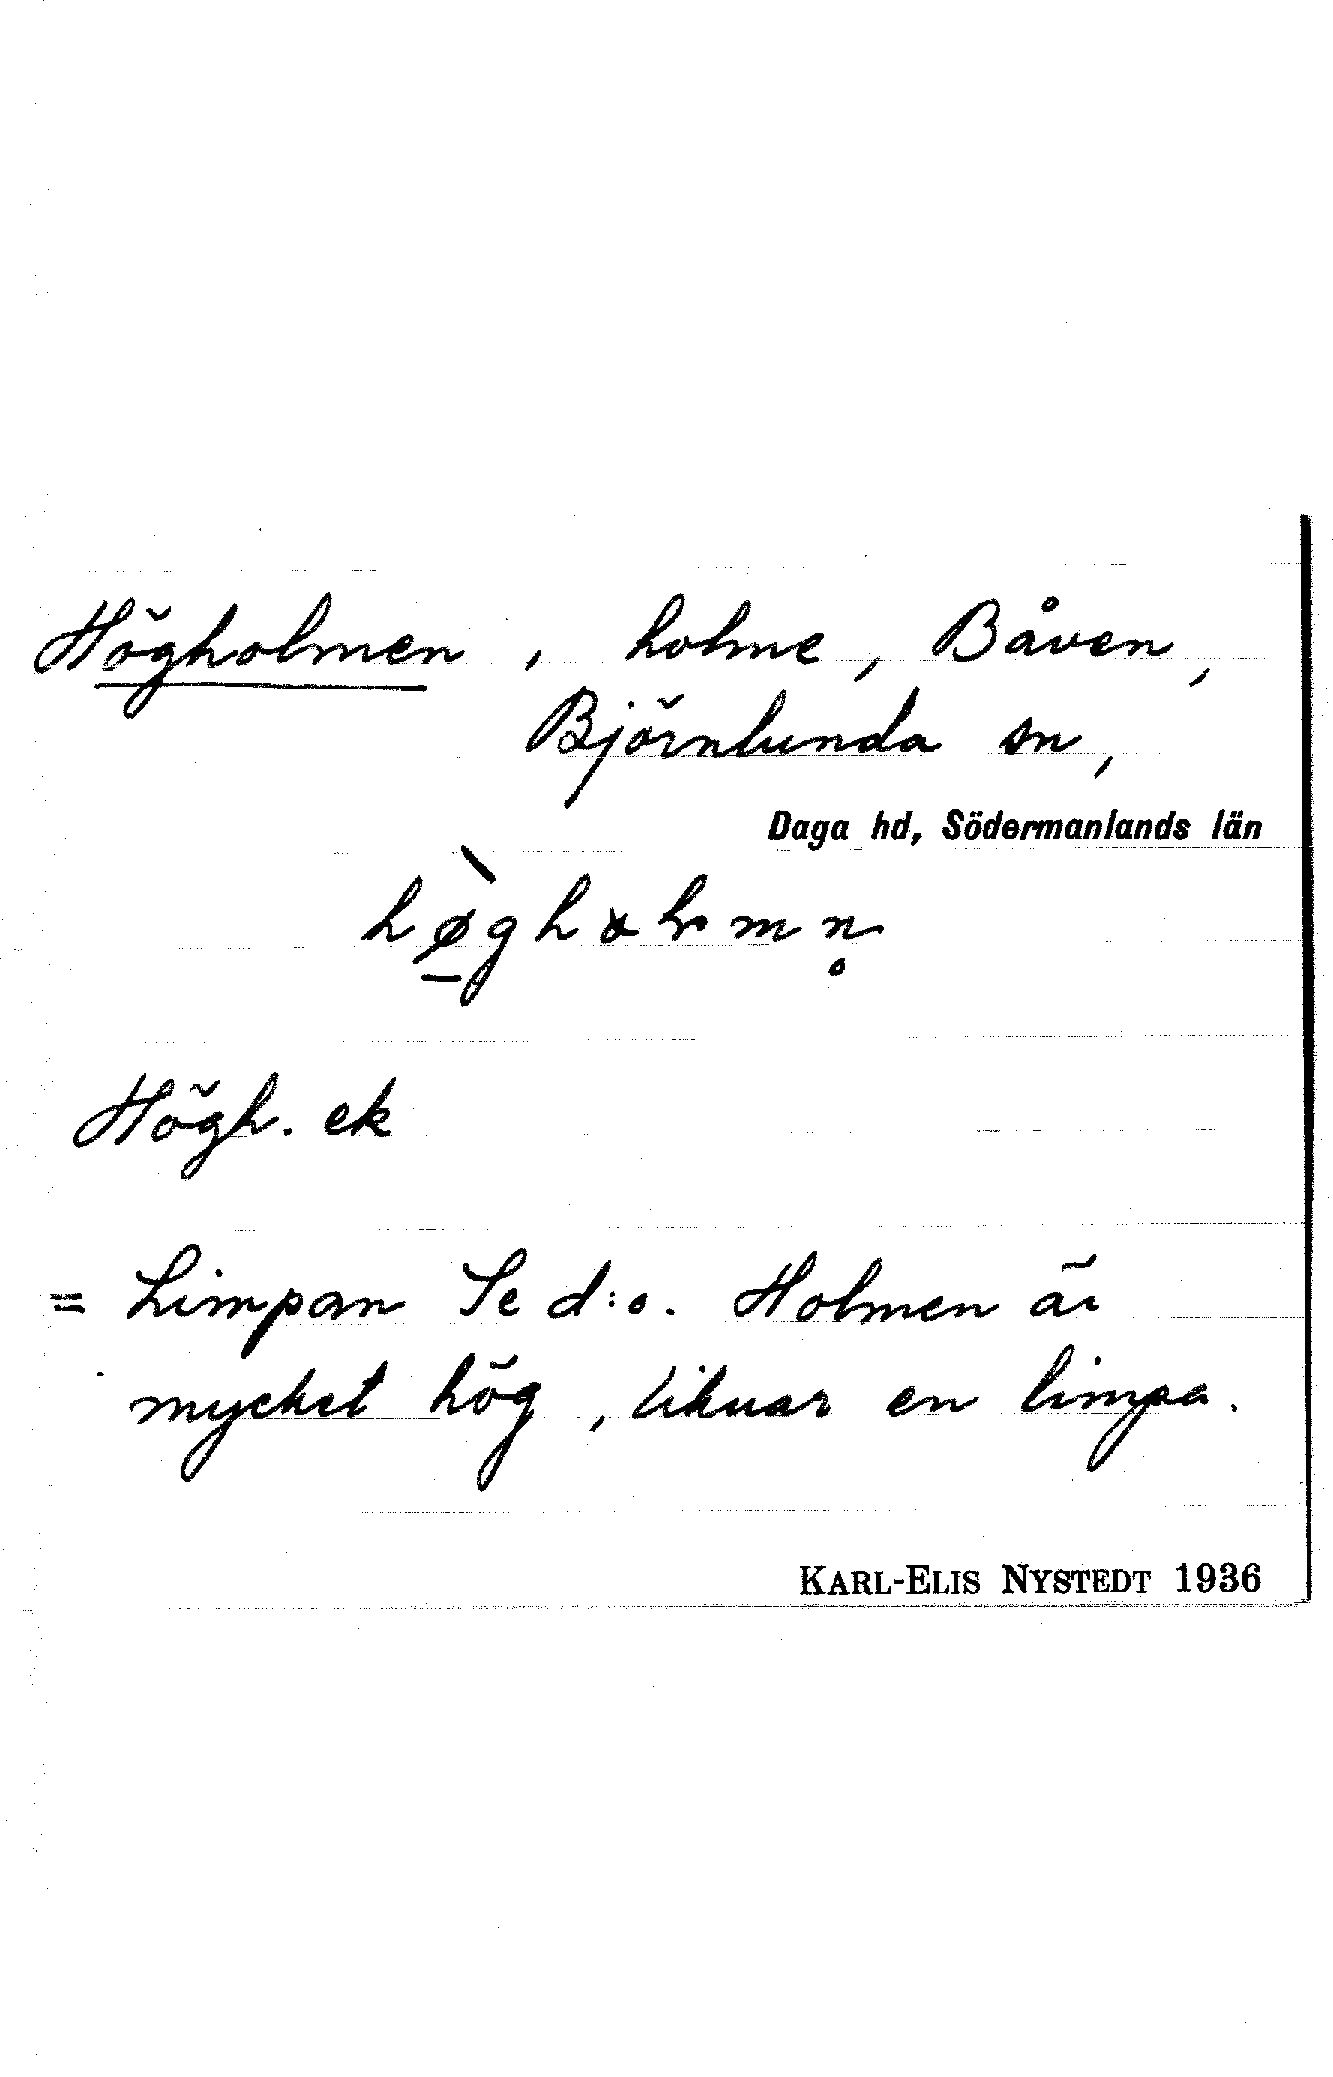 Högholmen, holme, Båven,
Björnlunda sn,
Daga hd, Södermanlands län
Högh. ek
= Limpan Se d:o. Holmen är
mycket hög, liknar en limpa.
KARL-ELIS NYSTEDT 1936